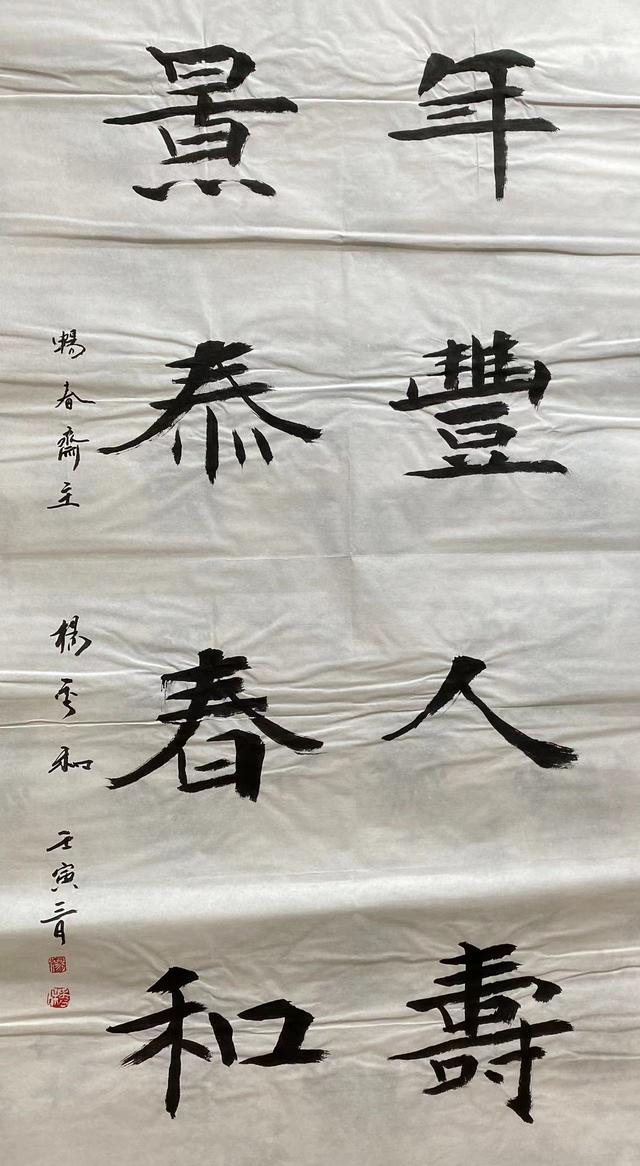 年豐人壽
景泰春和
暢春齋主 楊 和 壬寅三月